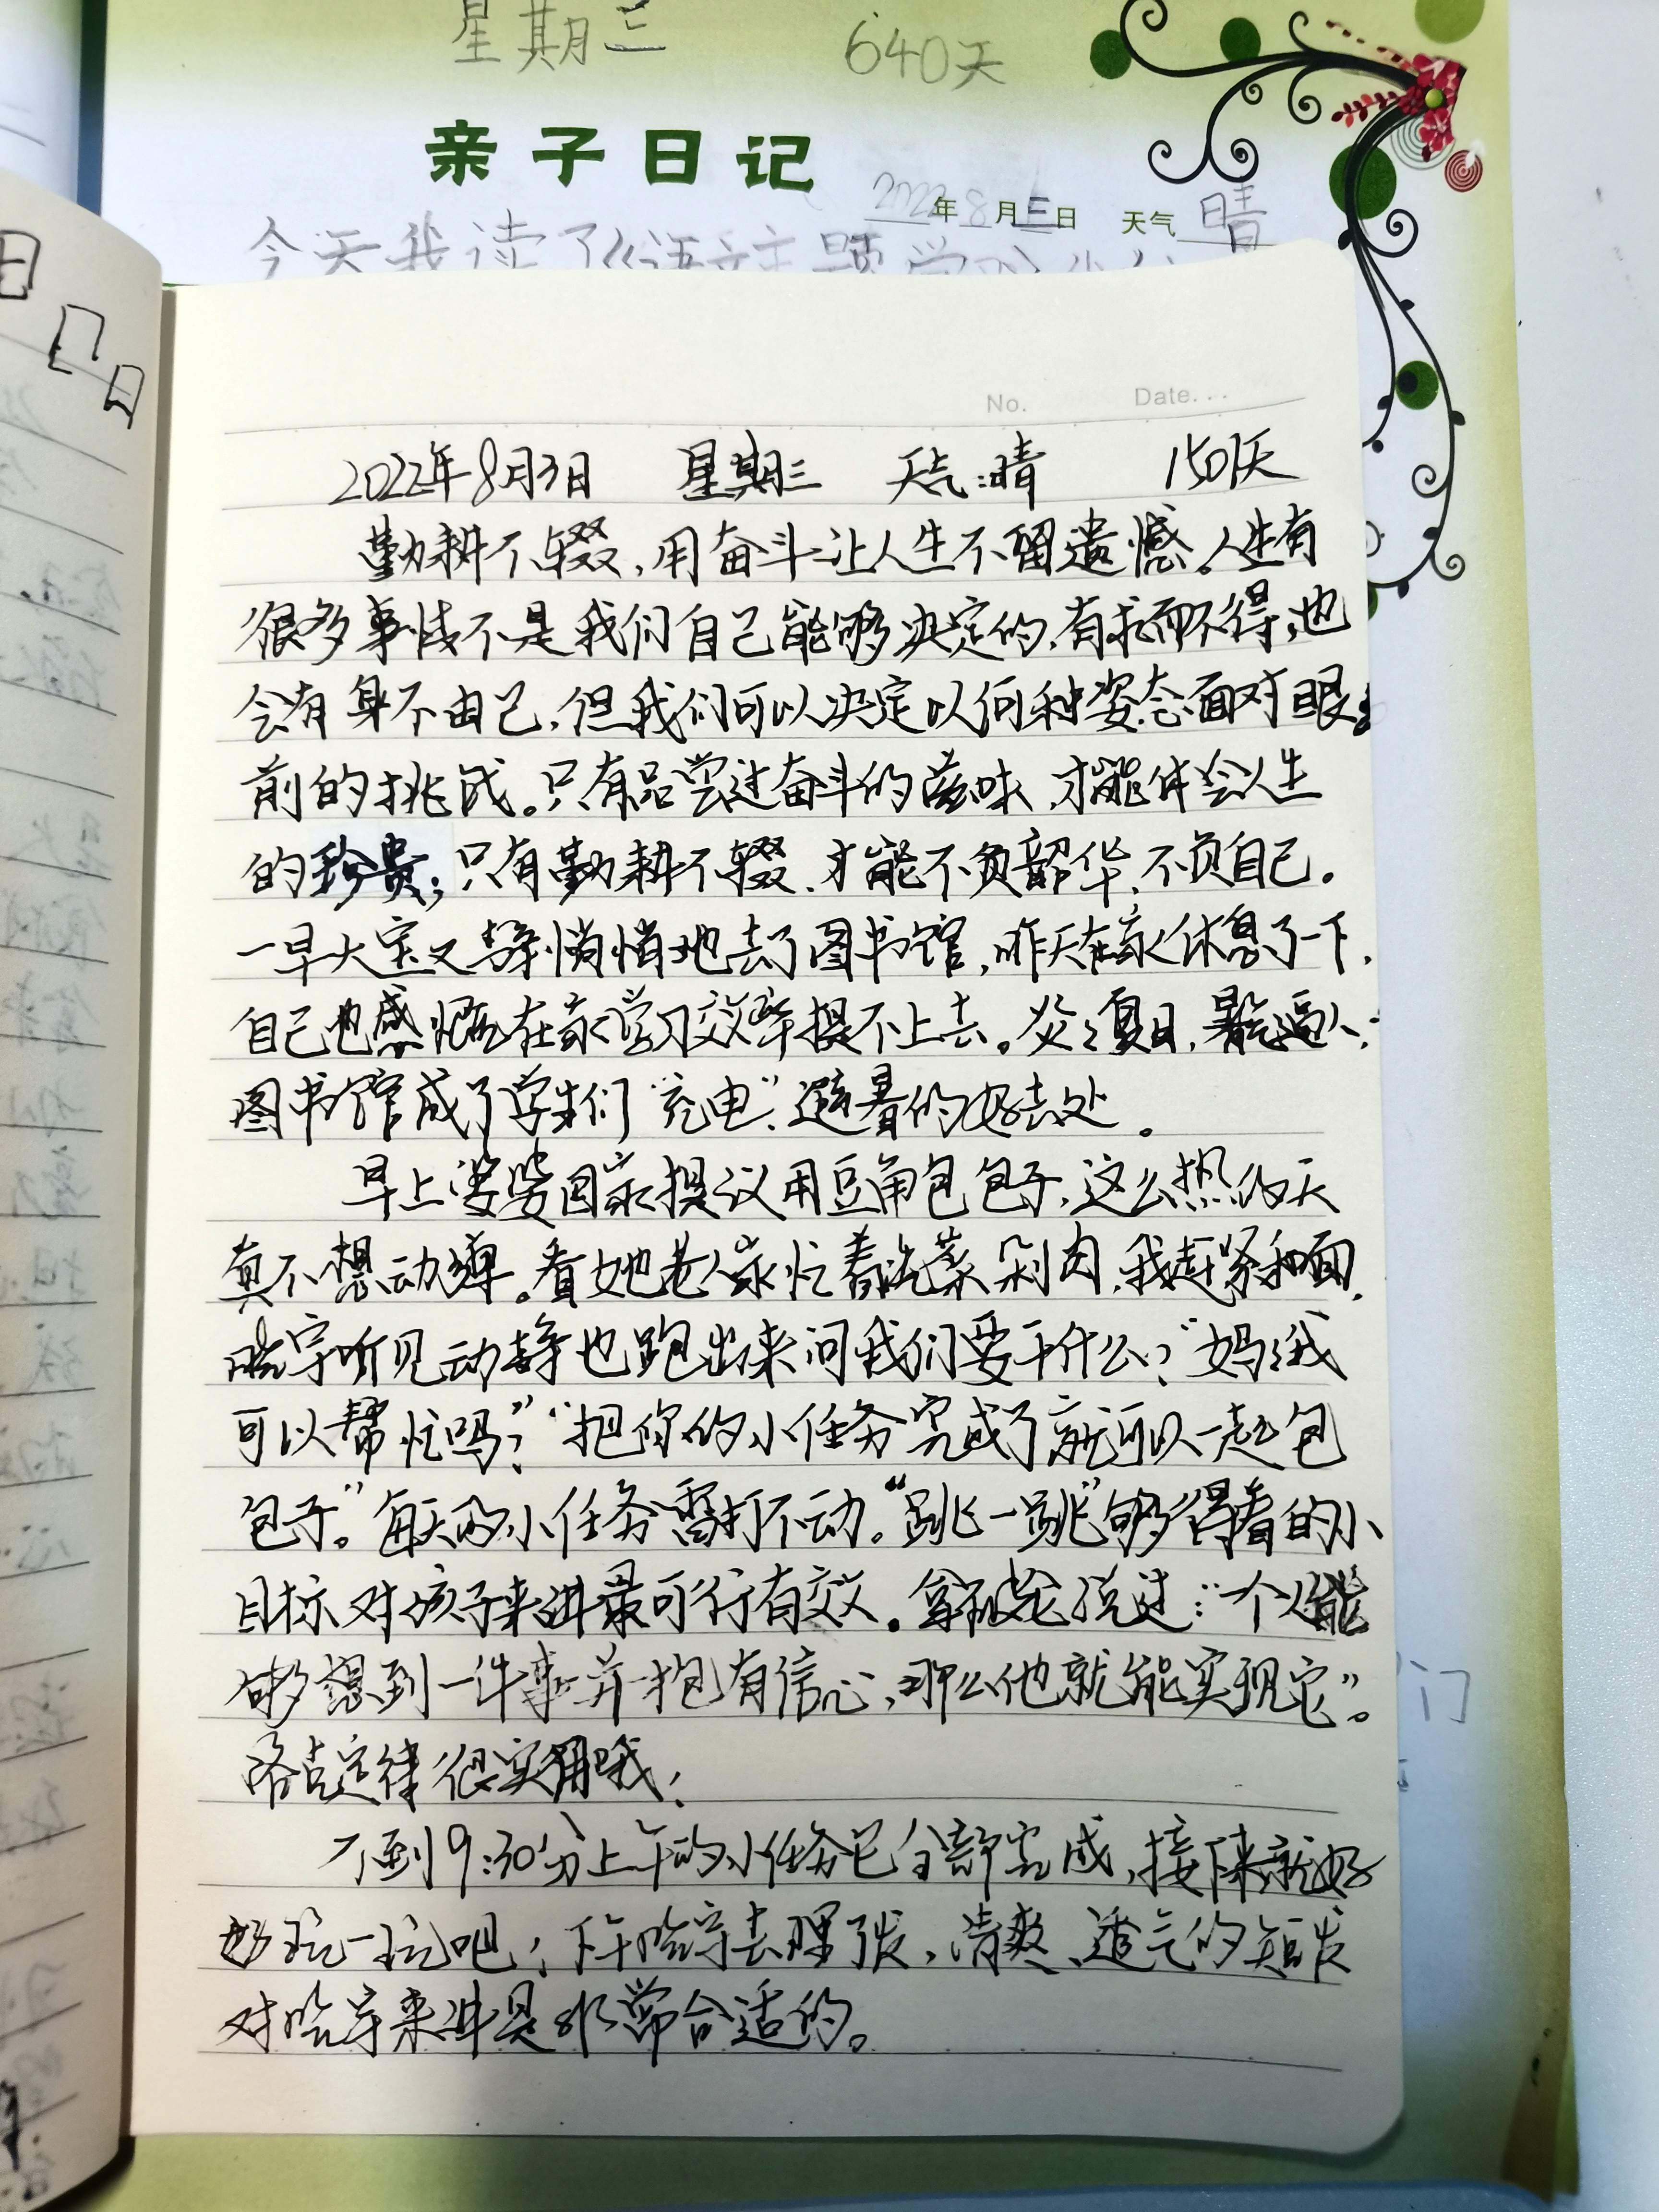 星期三 640天
亲子日记
2022年8月三日 天气 晴
今天我读了《语文主题学习》
No. Date...
2022年8月3日 星期三 天气:晴 1501天
勤耕不辍,用奋斗让人生不留遗憾。人生有
很多事情不是我们自己能够决定的,有求而不得,也
会有身不由己,但我们可以决定以何种姿态面对眼
前的挑战。只有品尝过奋斗的滋味,才能体会人生
的珍贵;只有勤耕不辍,才能不负韶华、不负自己。
一早大宝又静悄悄地去了图书馆,昨天在家休息了一下,
自己也感慨在家学习效率提不上去。炎炎夏日,暑气逼人,
图书馆成了学生们“充电”、避暑的好去处。
早上婆婆回家提议用豆角包包子,这么热的天
真不想动弹。看她老人家忙着洗菜剁肉,我赶紧和面,
晗宇听见动静也跑出来问我们要干什么?“妈妈我
可以帮忙吗?”“把你的小任务完成了就可以一起包
包子。”每天的小任务雷打不动。“跳一跳”够得着的小
目标对孩子来讲最可行有效。拿破仑说过:“一个人能
够想到一件事并抱有信心,那么他就能实现它”。
洛克定律很实用哦!
不到9:30分上午的小任务已全部完成,接下来就好
好玩一玩吧!下午晗宇去理了发,清爽、透气的短发
对晗宇来讲是非常合适的。
门